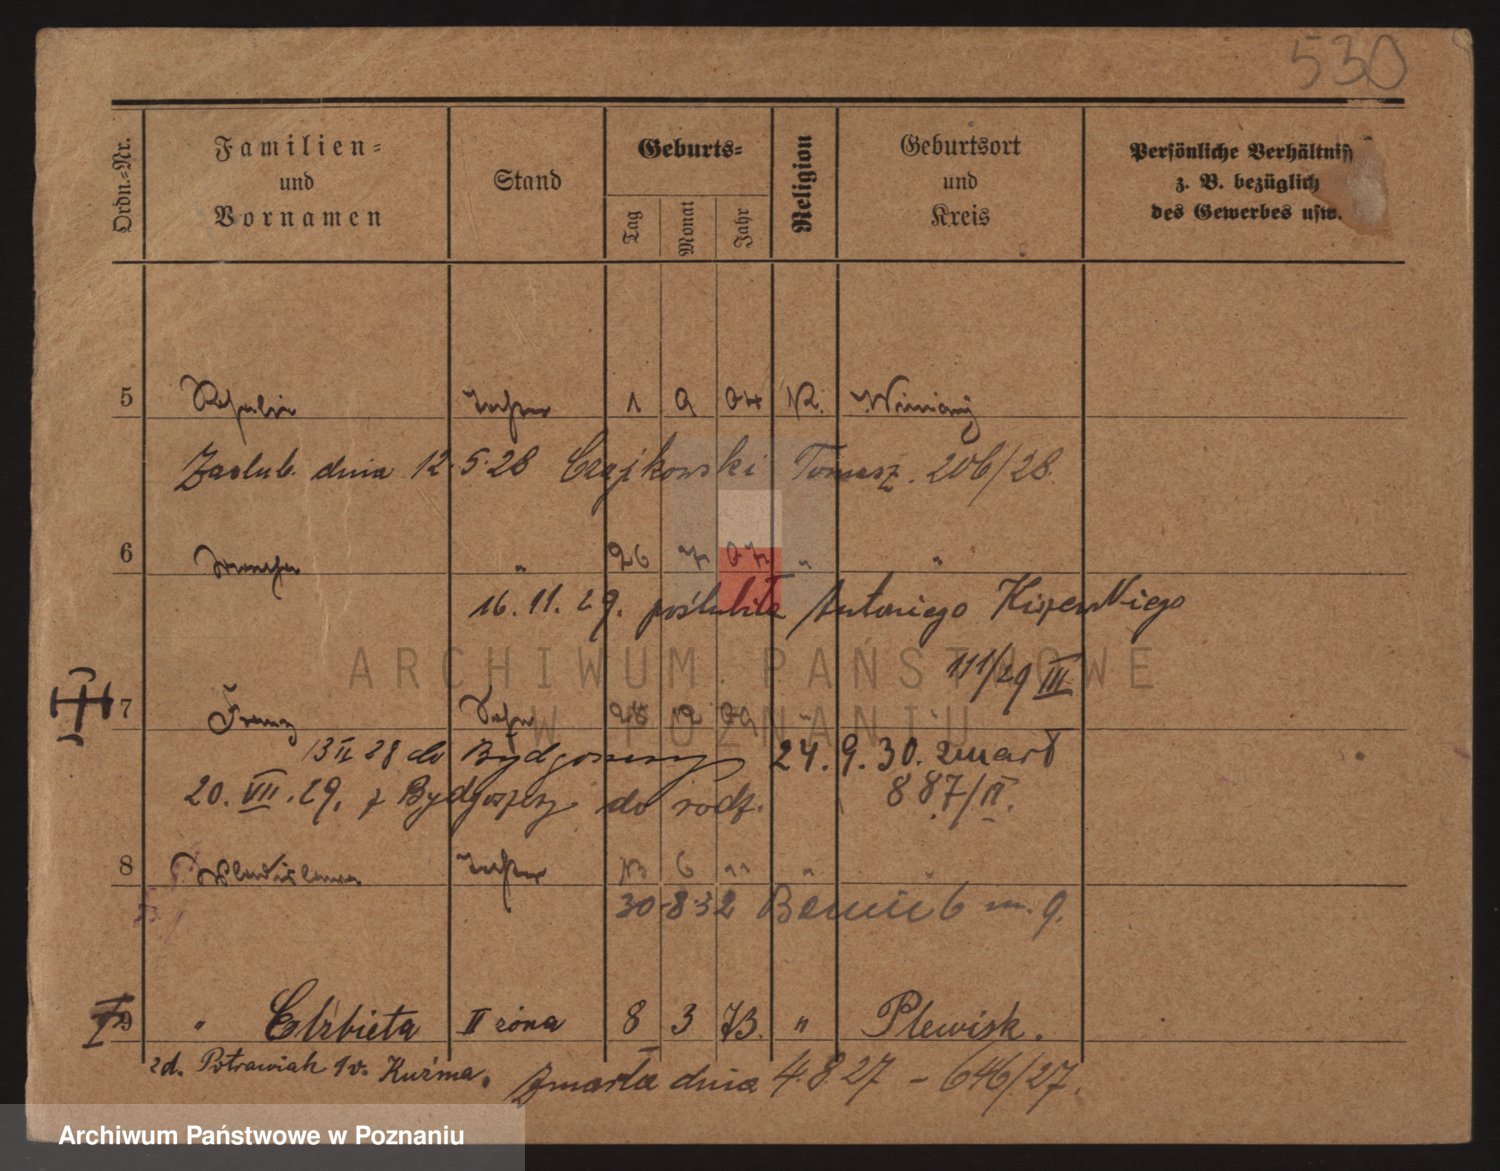 530
Ordn.-Nr.
Familien-
und
Vornamen
Stand
Geburts-
Tag
Monat
Jahr
Religion
Geburtsort
und
Kreis
Persönliche Verhältniss
z. B. bezüglich
des Gewerbes usw.
5 Tochter 1 9 04 K. Winiary
Zaślub. dnia 12.5.28 Czajkowski Tomasz. 206/28
6 " 26 7 07 " "
16.11.29. poślubiła Antoniego
111/29 III
7 Franz Sohn 12 09 "
13 II 28 do Bydgoszczy 24.9.30. zmarł
20. VII. 29. z Bydgoszczy do rodz. 887/II.
8 Wladislawa Tochter 13 6 11 "
30.8.32 6 m. 9.
9 " Elżbieta II żona 8 3 73. " Plewisk.
zd. Potrawiak 1v. Kuźma. Zmarła dnia 4.8.27 – 646/27.
ARCHIWUM PAŃSTWOWE
W POZNANIU
Archiwum Państwowe w Poznaniu